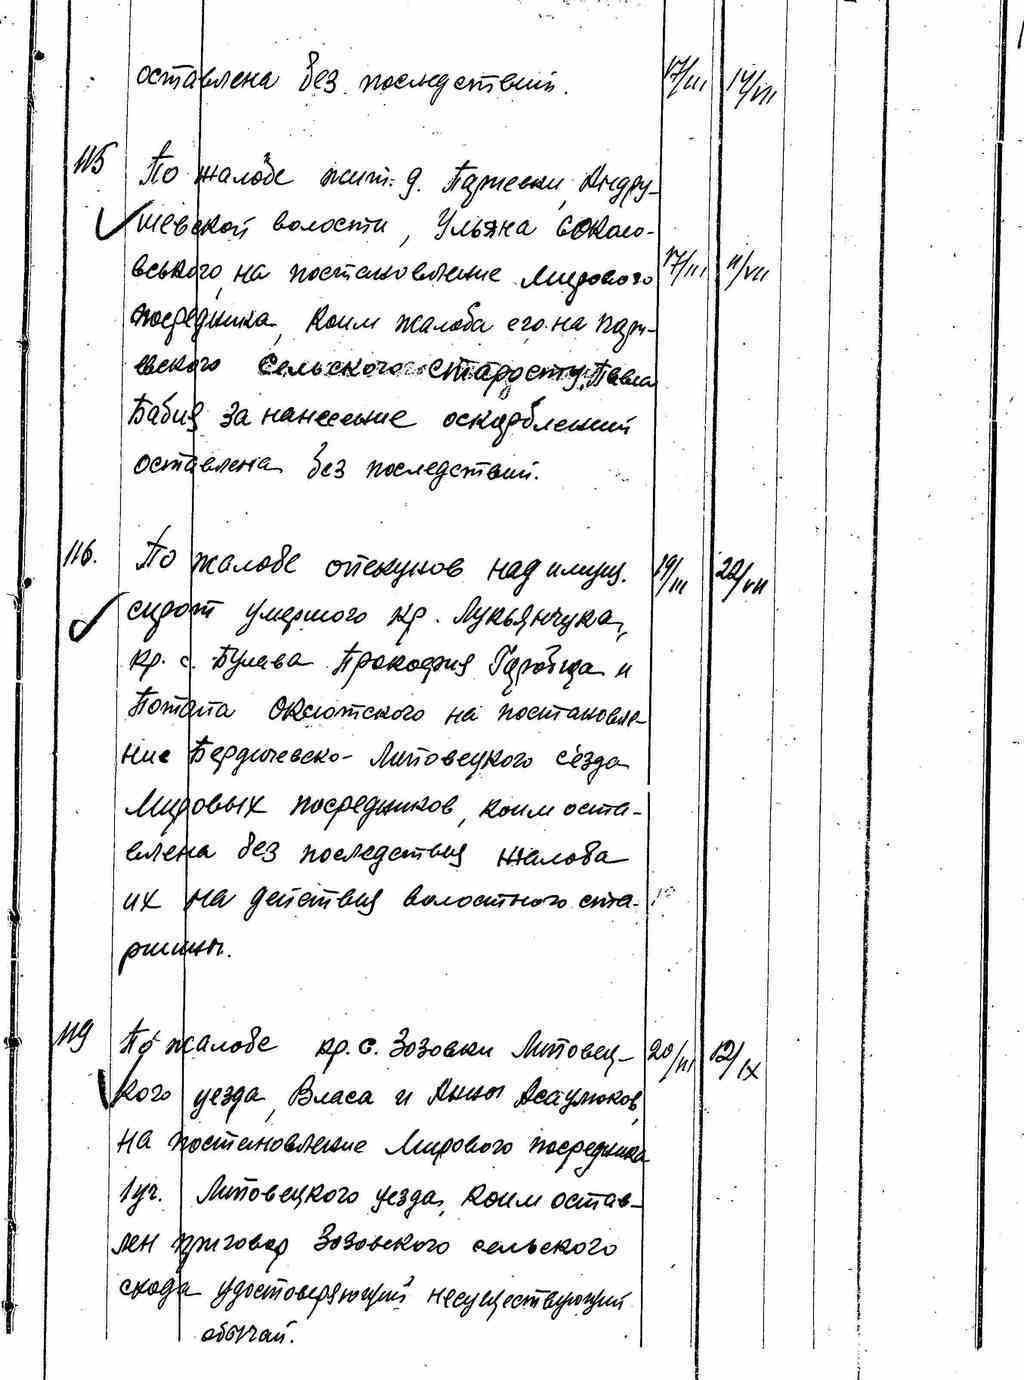 оставлена без последствий. 17/III 14/VII
115 По жалобе жит. д. Паричевки, Андру-
шевской волости, Ульяна Соколо-
вського, на постановление Мирового 17/III 11/VII
посредника, коим жалоба его на пари-
евского сельского старосту Павла
Бабия за нанесение оскорблений
оставлена без последствий.
116. По жалобе опекунов над имущ. 19/III 22/VII
сирот умершого кр. Лукьянчука,
кр. с. Булава Прокофия и
Потапа Оксютского на постановле-
ние Бердичевско-Липовецкого съезда
Мировых посредников, коим оста-
влена без последствия жалоба
их на действия волостного ста-
ршины.
119 По жалобе кр. с. Зозовки Липовец- 20/III 12/IX
кого уезда, Власа и Анны Асаулюков,
на постановление Мирового посредника
1 уч. Липовецкого уезда, коим остав-
лен приговор Зозовского сельского
схода удостоверяющий несуществующий
обычай.